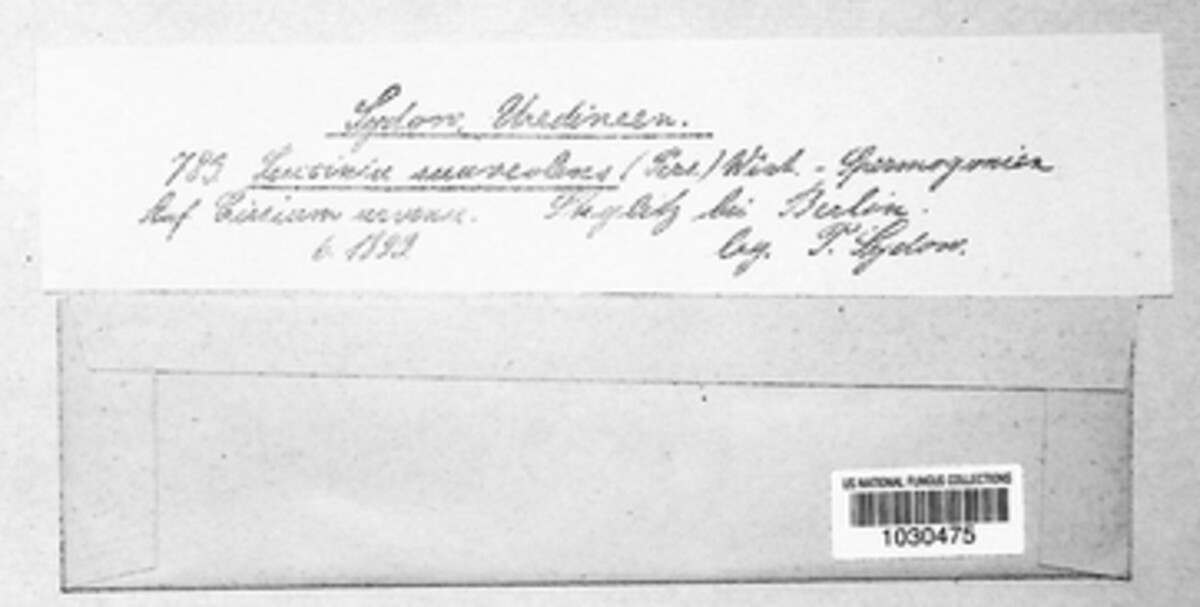 Sydow, Uredineen.
783 Puccinia suaveolens (Pers.) Wint. - Spermogonien
Auf Cirsium arvense. Steglitz bei Berlin.
6. 1893 leg. P. Sydow.
US NATIONAL FUNGUS COLLECTIONS
1030475